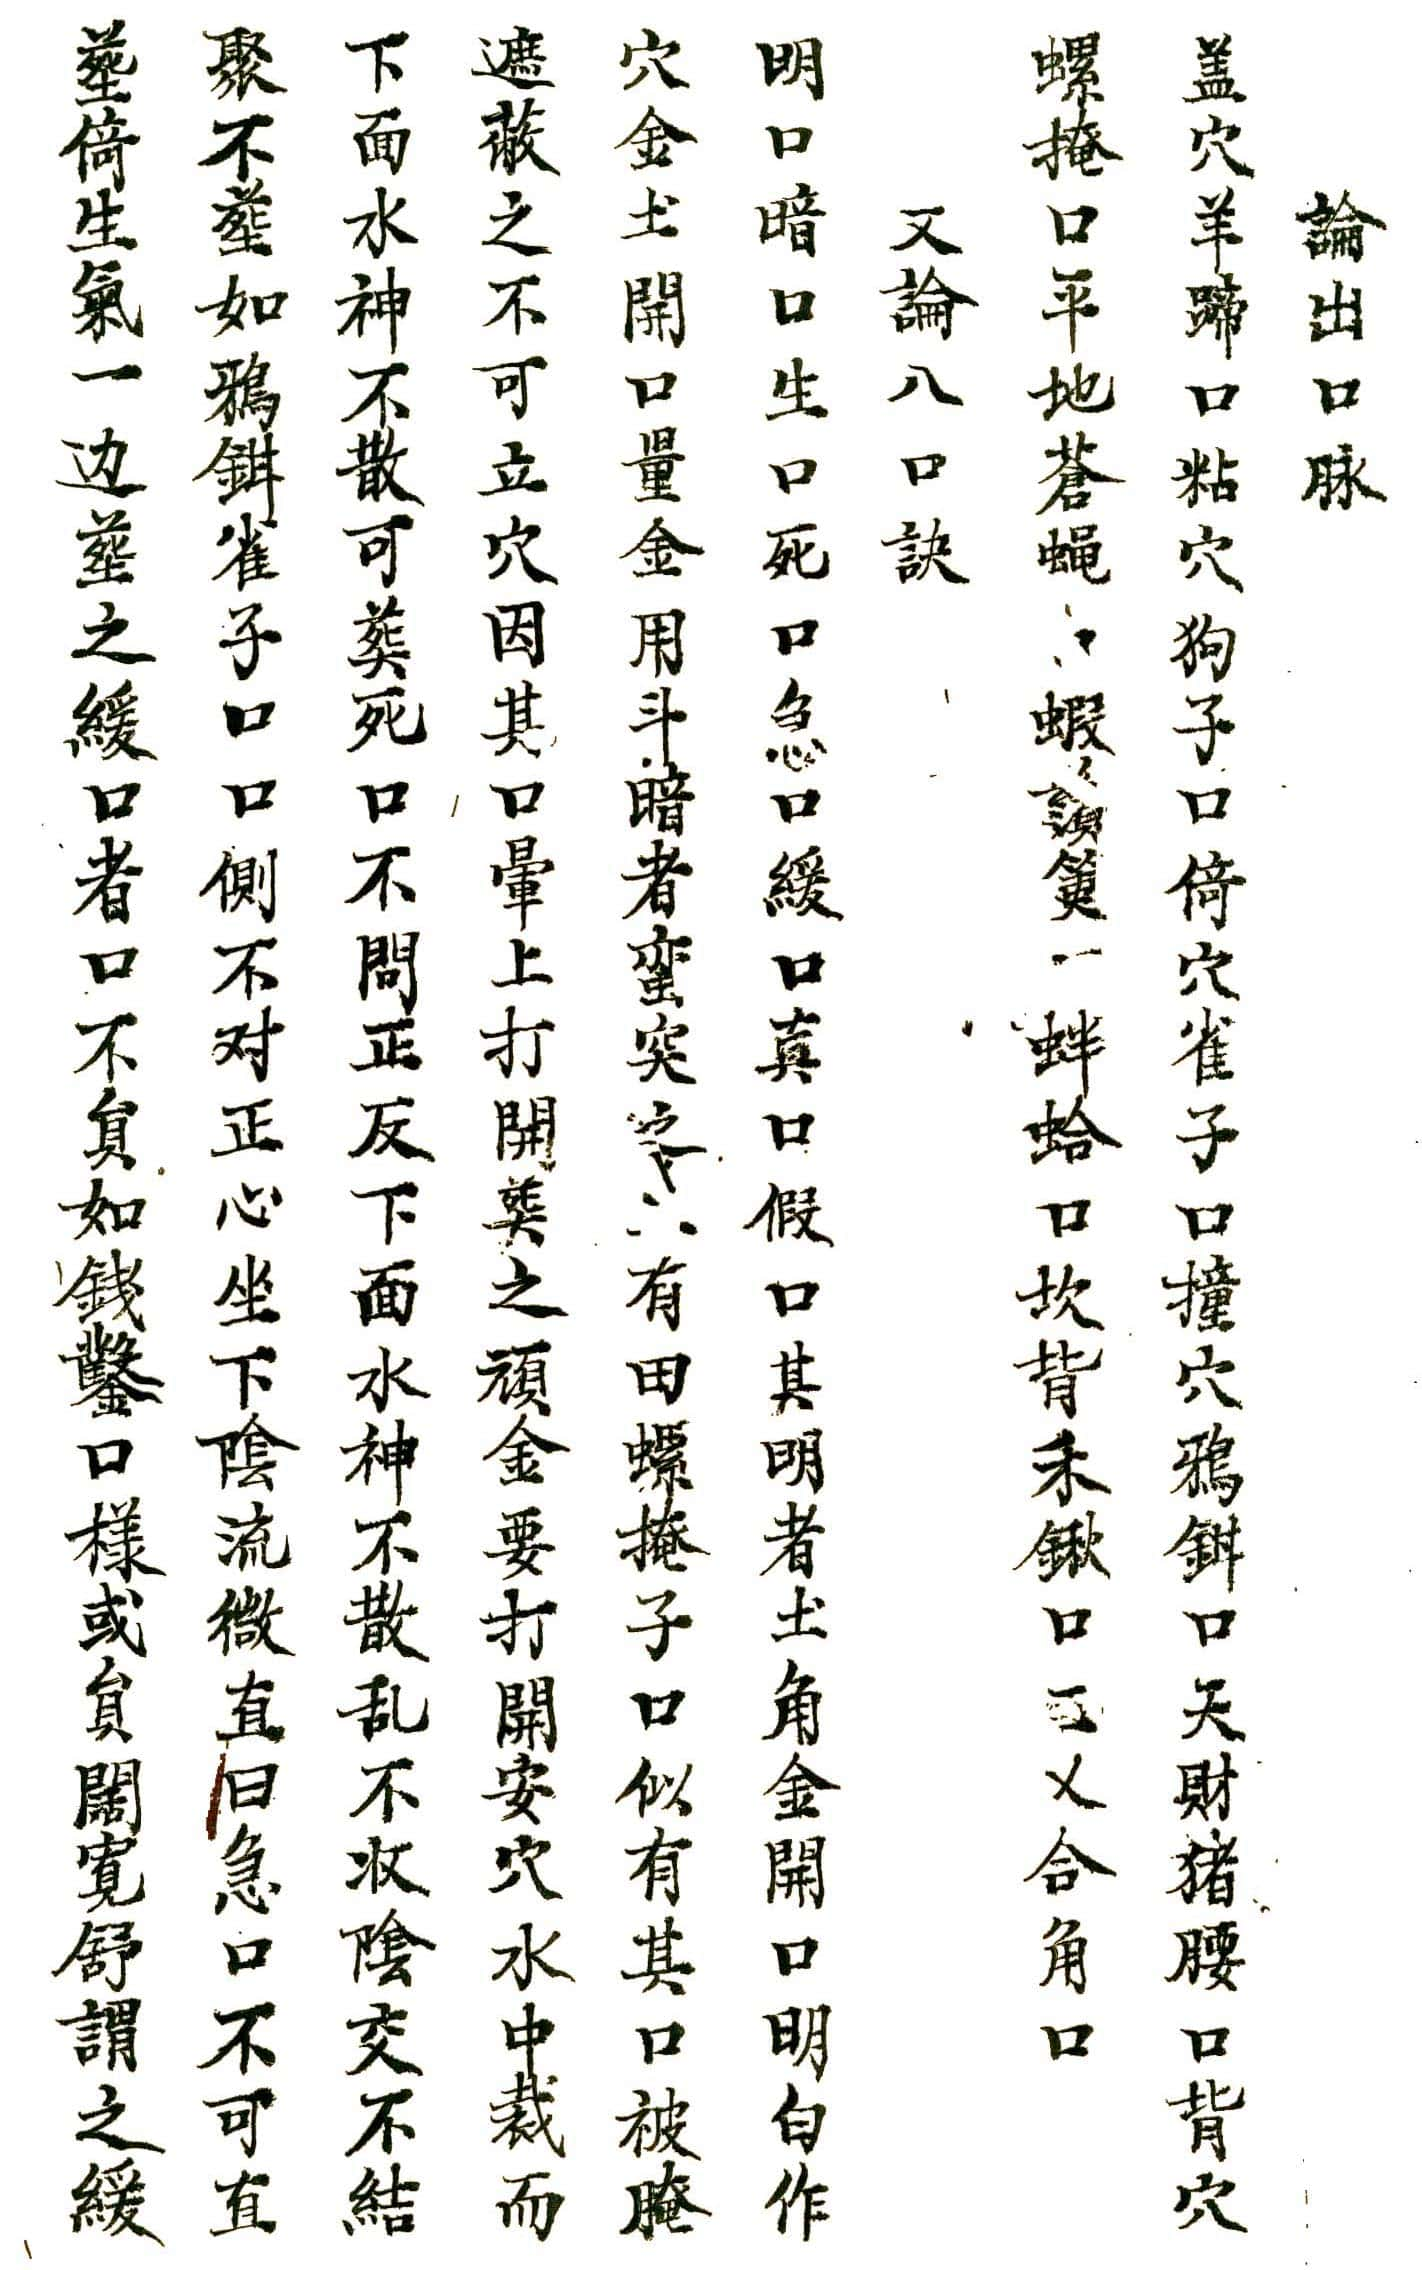 論出口脉
盖穴羊蹄口粘穴狗子口倚穴雀子口撞穴鴉鉗口天財猪腰口背穴
螺掩口平地蒼蝇口蝦蟇一蚌蛤口坎背禾鍬口乂合角口
又論八口訣
明口暗口生口死口急口緩口真口假口其明者土角金開口明白作
穴金土開口量金用斗暗者蛮突之穴有田螺掩子口似有其口被腌
遮蔽之不可立穴因其口暈上打開葬之頑金要打開安穴水中裁而
下面水神不散可葬死口不問正反下面水神不散乱不收陰交不結
聚不塟如鴉鉗雀子口口側不对正心坐下陰流微直曰急口不可直
塟倚生氣一边塟之緩口者口不貟如銭鑿口樣或貟闊寛舒謂之緩